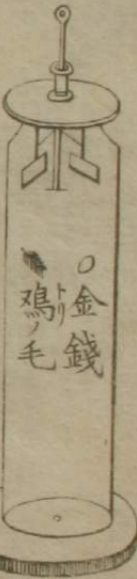 金錢
鷄ノ毛
トリ